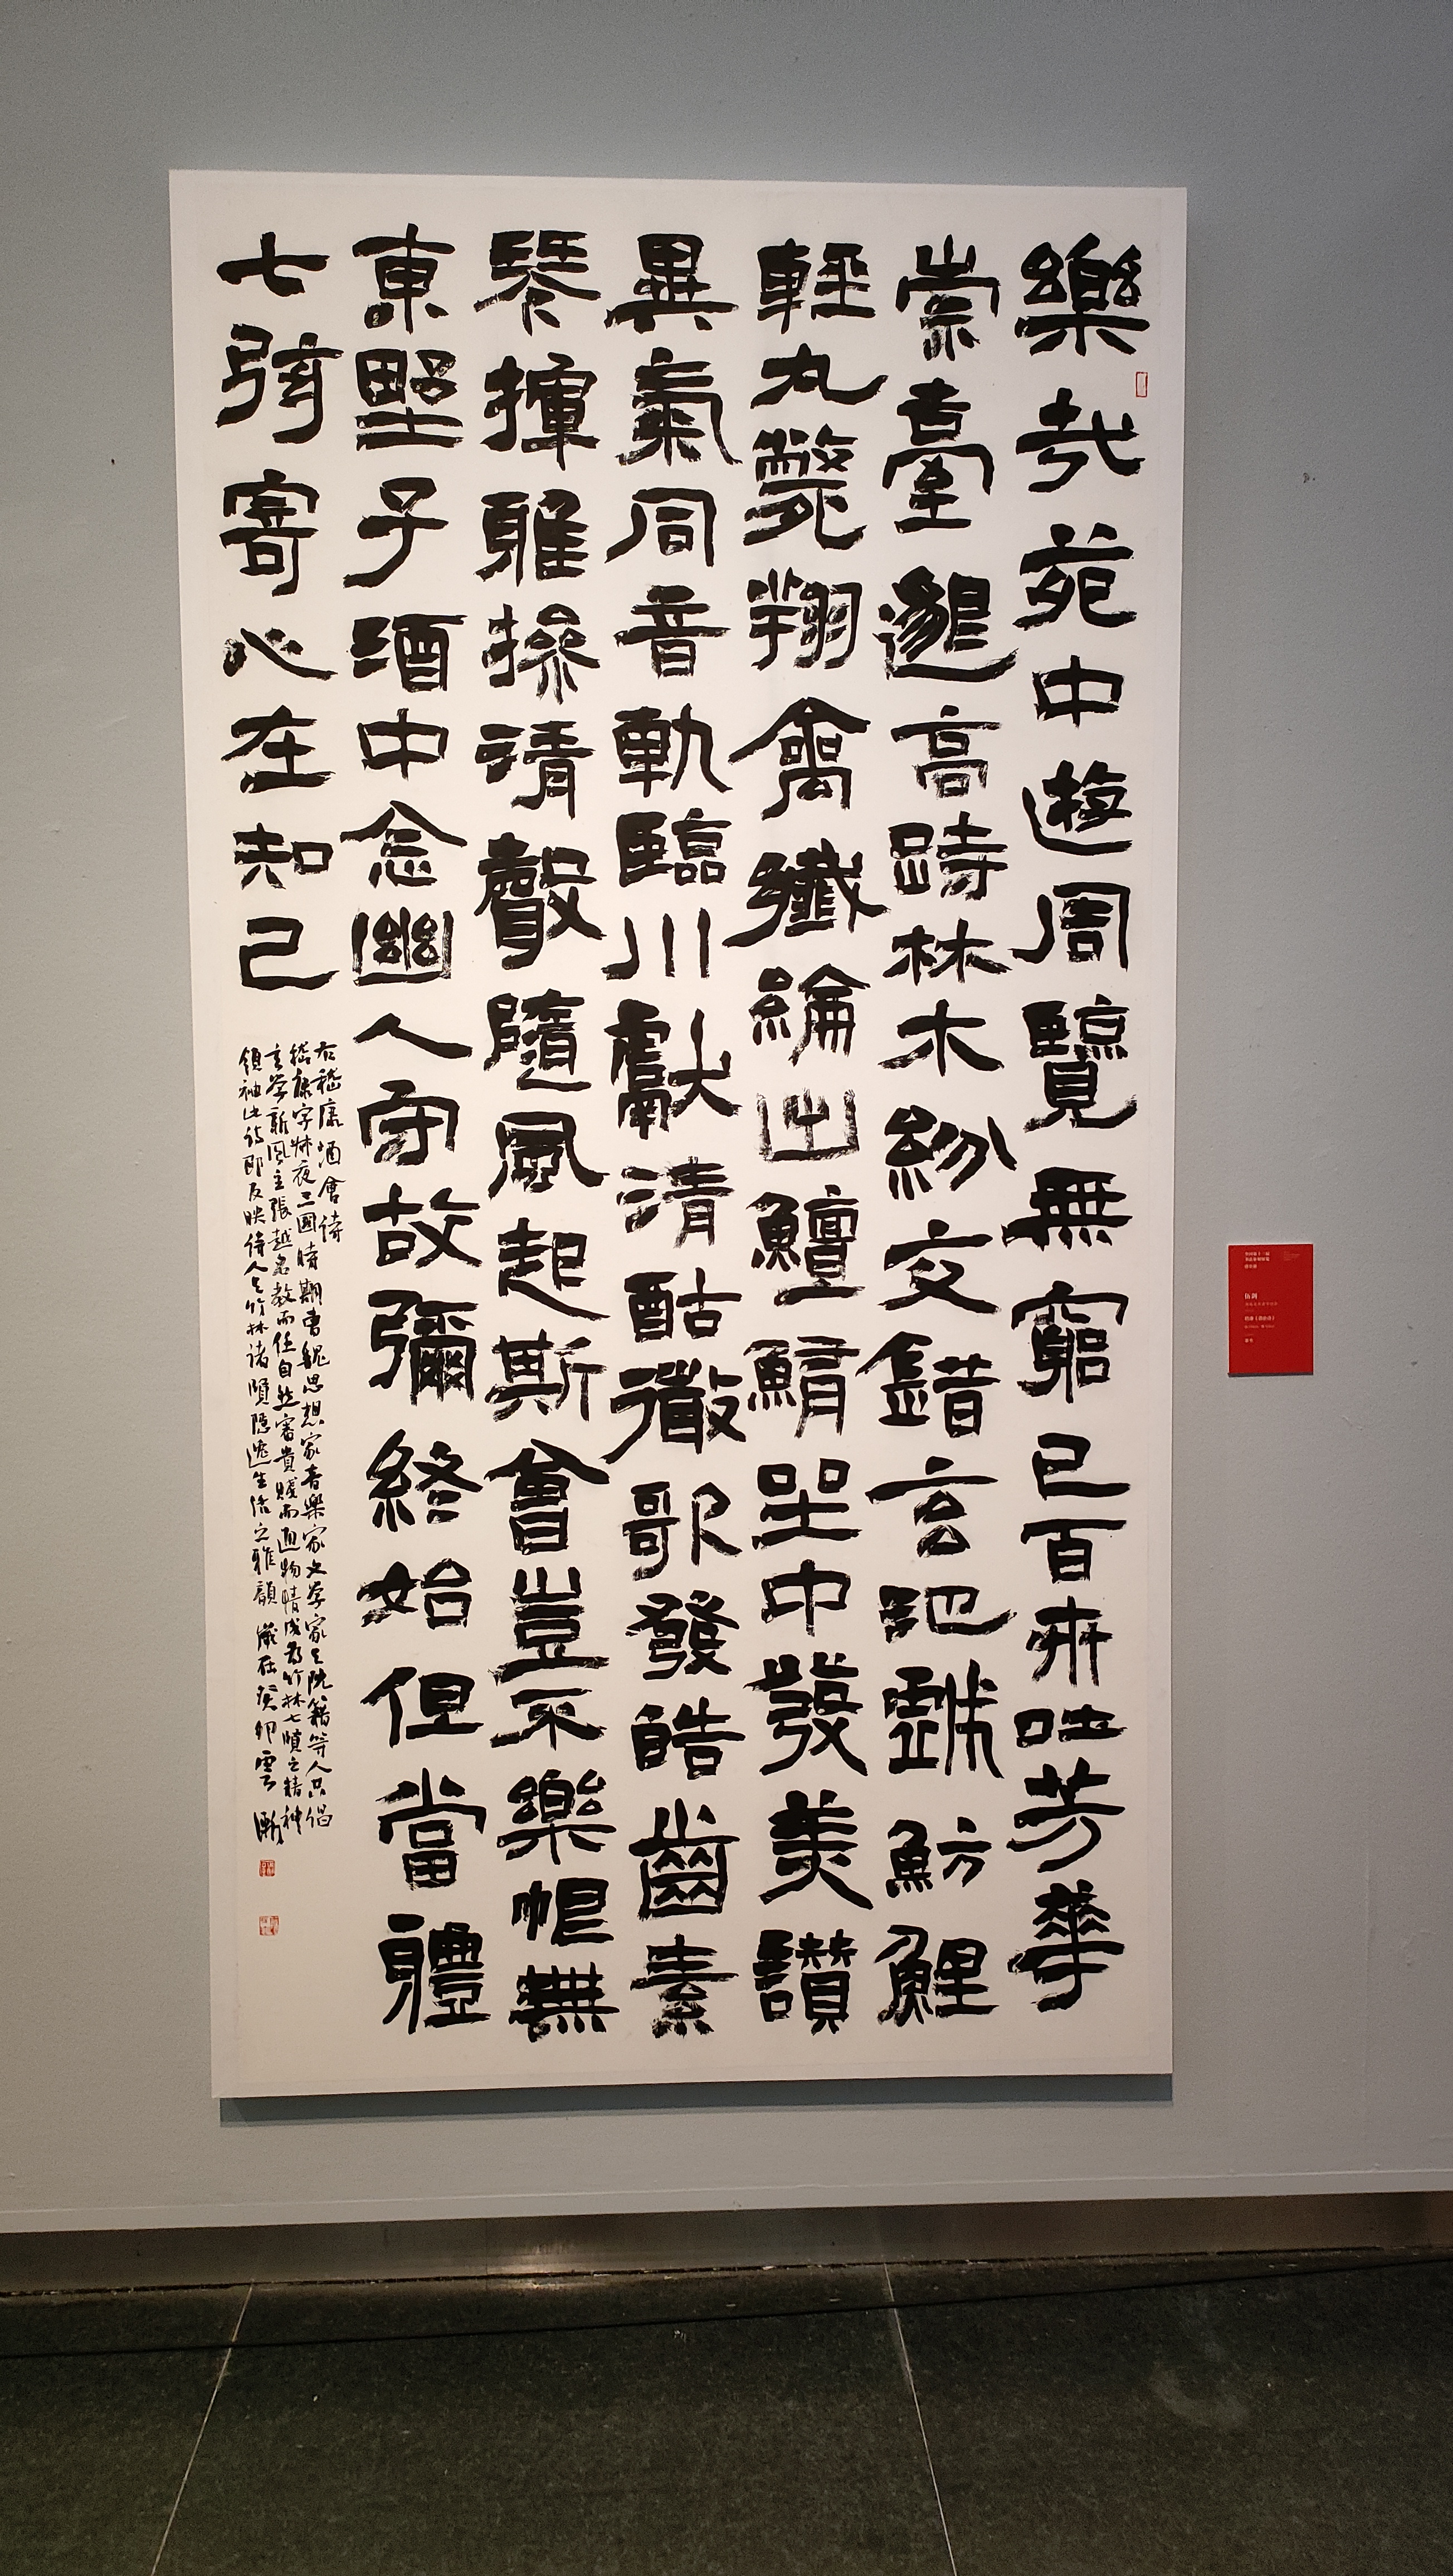 樂哉苑中遊周覽無窮已百卉吐芳華
崇臺邈高跱林木紛交錯玄池戲魴鯉
輕丸斃翔禽纖綸出鱣鮪坐中發美讚
異氣同音軌臨川獻清酤微歌發皓齒素
琴揮雅操清聲隨風起斯會豈不樂恨無
東野子酒中念幽人守故彌終始但當體
七弦寄心在知己
右嵇康酒會詩
嵇康字叔夜三國時期曹魏思想家音樂家文學家与阮籍等人共倡
玄學新風主張越名教而任自然審貴賤而通物情成為竹林七賢之精神
領袖此詩即反映詩人与竹林諸賢隱逸生活之雅韻 歲在癸卯雲